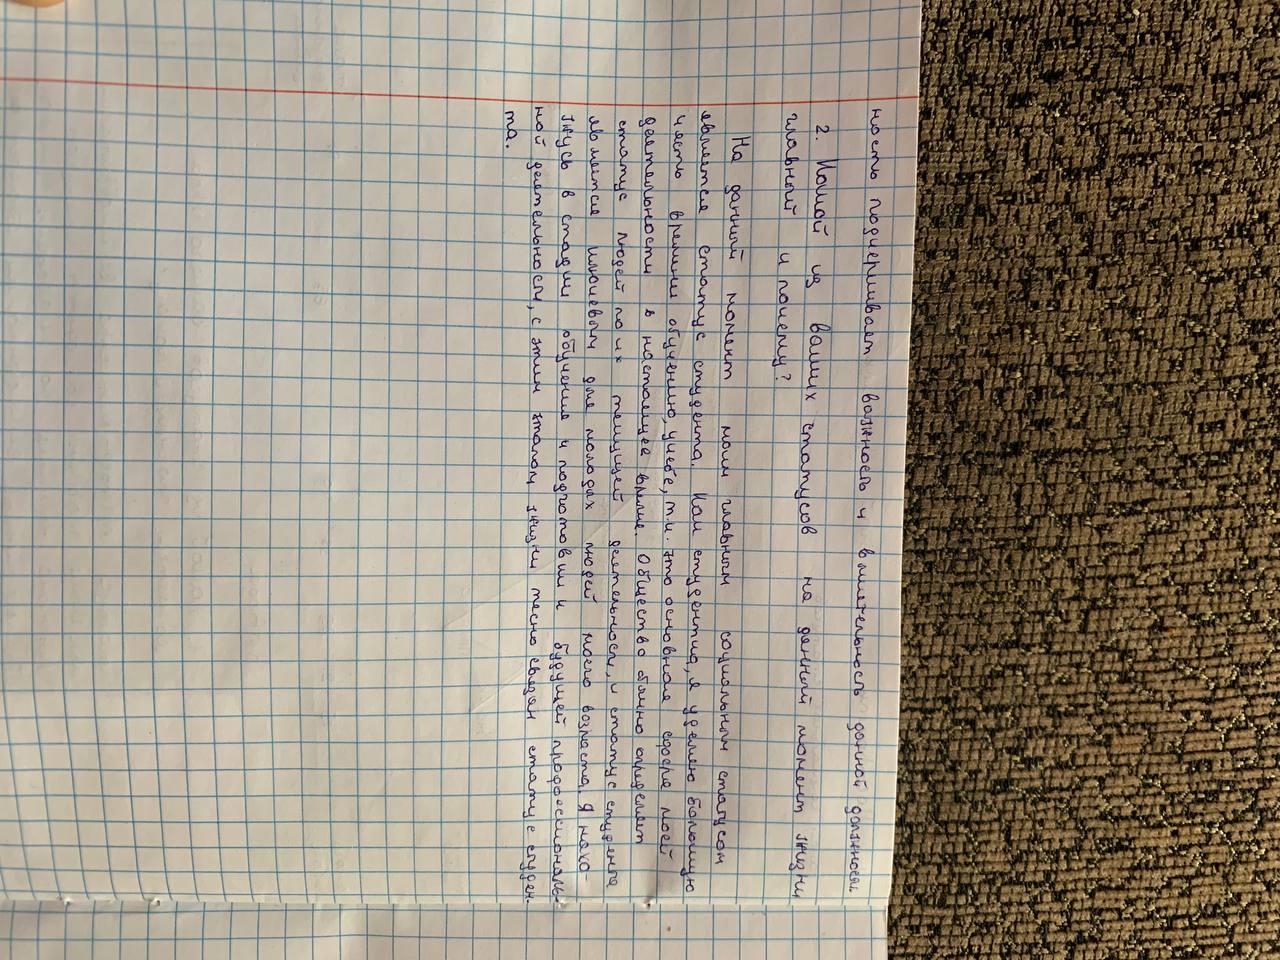 ность подчеркивает важность и влиятельность данной должности
2. Какой из ваших статусов на данный момент жизни
главный и почему?
На данный момент моим главным социальным статусом
является статус студента. Как студентка, я уделяю большую
часть времени обучению, учебе, т.к. это основная сфера моей
деятельности в настоящее время. Общество обычно определяет
статус людей по их текущей деятельности, и статус студента
является ключевым для молодых людей моего возраста. Я нахо-
жусь в стадии обучения и подготовки к будущей профессиональ-
ной деятельности, с этим этапом жизни тесно связан статус студен-
та.